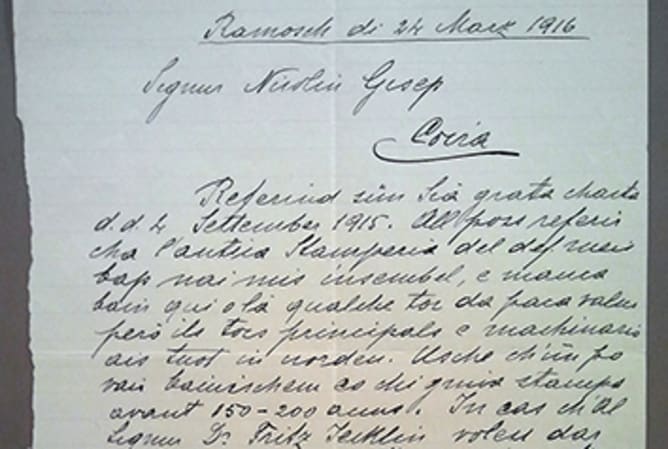 Ramosch di 24 Marz 1916
Signur Nicolin Gisep
Coira
Referind sün Sia grata charta
d.d. 4 Settember 1915. All poss referir
cha l'antica Stamperia del def. meis
bap nai mis insembel, e manca
bain qui o là qualche toc da paca valur
però ils tocs principals e machinaris
ais tuot in uorden. Usche ch'ün po
vair bainischem co chi gniva stampà
avant 150-200 anns. In cas ch'Al
Signur Dr. Fritz Jecklin voless dar